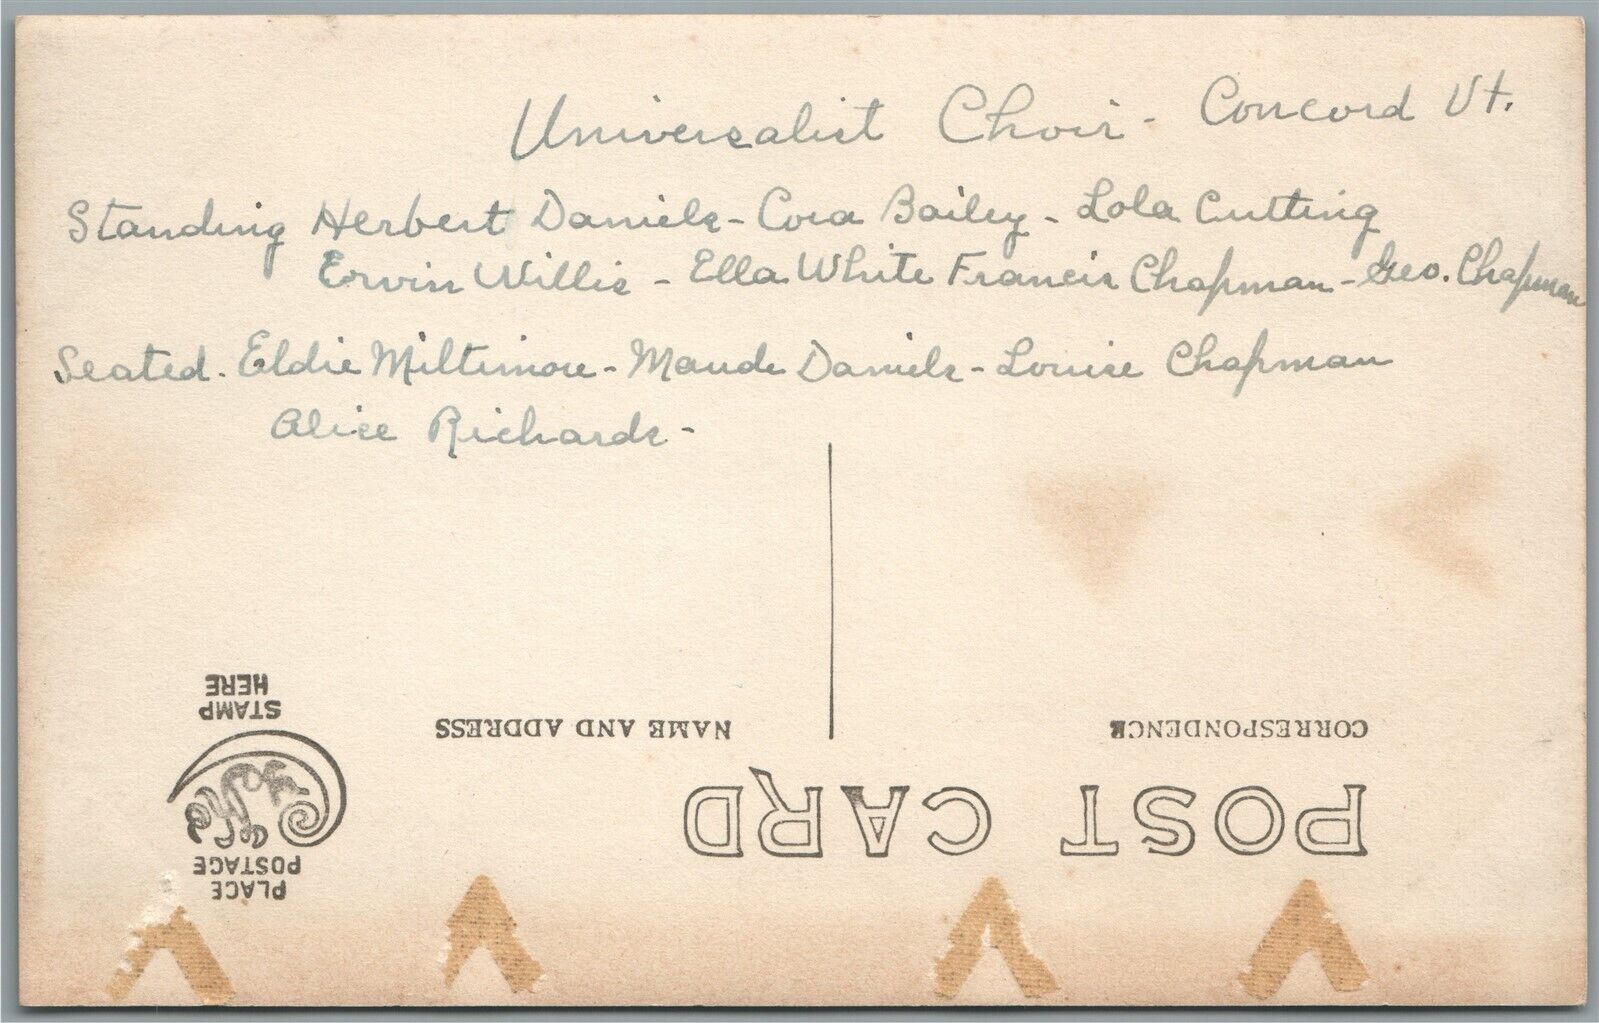 Universalist Choir - Concord Vt.
Standing Herbert Daniels - Cora Bailey - Lola Cutting
Ervin Willis - Ella White Francis Chapman - Geo. Chapman
Seated. Eldie Miltimore - Maude Daniels - Louise Chapman
Alice Richards -
POST CARD
CORRESPONDENCE
NAME AND ADDRESS
PLACE
POSTAGE
STAMP
HERE